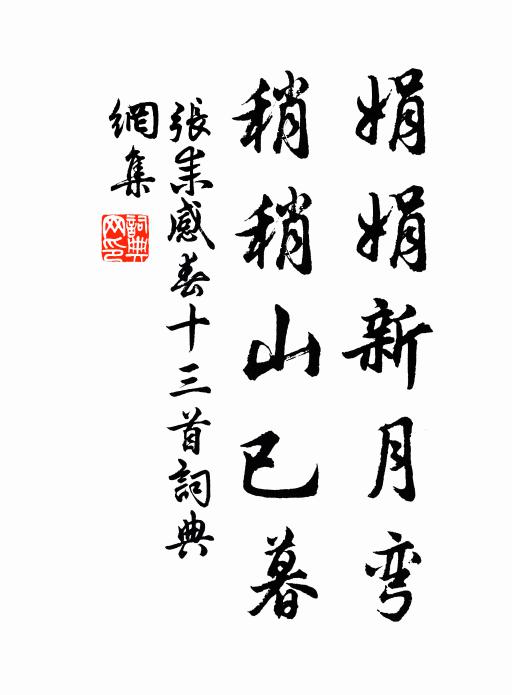 娟娟新月弯
稍稍山已暮
張耒感春十三首詞典
網集
詞典
网印